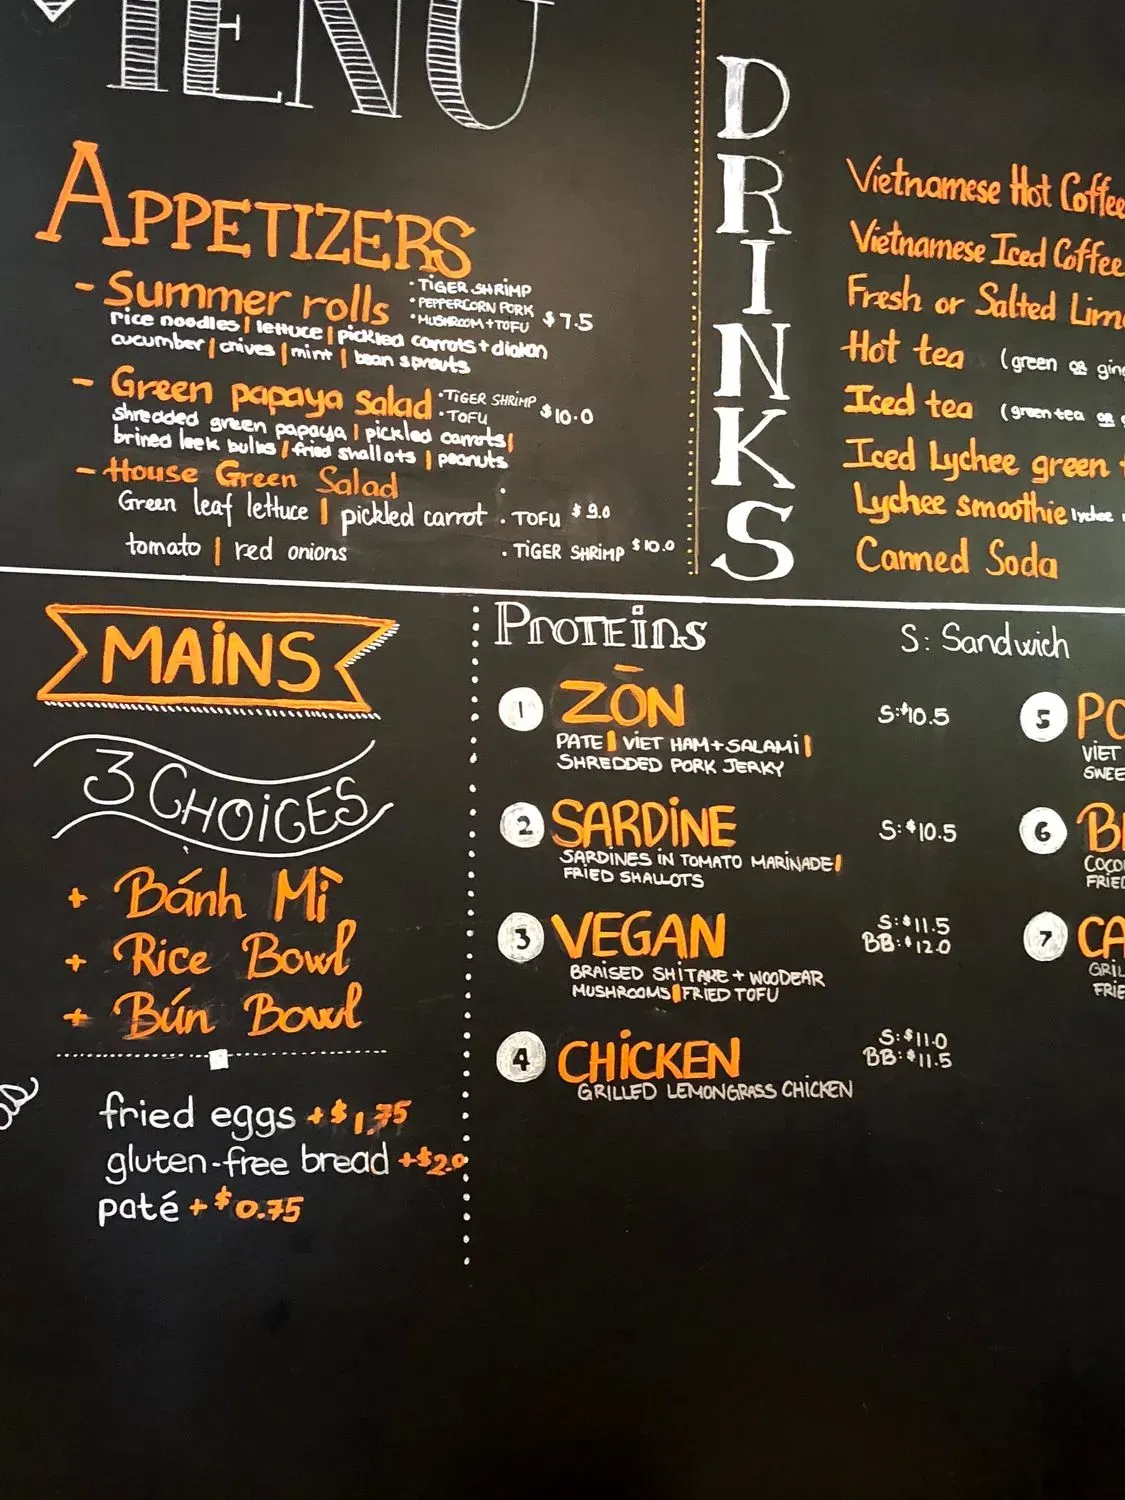 MENU
APPETIZERS
- Summer rolls
• TIGER SHRIMP
• PEPPERCORN PORK
• MUSHROOM + TOFU
$7.5
rice noodles | lettuce | pickled carrots + diakon
cucumber | chives | mint | bean sprouts
- Green papaya Salad
• TIGER SHRIMP
• TOFU
$10.0
shredded green papaya | pickled carrots |
brined leek bulbs | fried shallots | peanuts
- House Green Salad
Green leaf lettuce | pickled carrot
• TOFU $9.0
tomato | red onions
• TIGER SHRIMP $10.0
DRINKS
Vietnamese Hot Coffee
Vietnamese Iced Coffee
Fresh or Salted Lim
Hot tea (green or gin
Iced tea (green tea or
Iced Lychee green
Lychee smoothie lychee
Canned Soda
MAINS
3 CHOICES
+ Bánh Mì
+ Rice Bowl
+ Bún Bowl
fried eggs +$1.75
gluten-free bread +$2.0
paté +$0.75
PROTEINS
S: Sandwich
1 ZŌN S:$10.5
PATE | VIET HAM + SALAMI |
SHREDDED PORK JERKY
2 SARDINE S:$10.5
SARDINES IN TOMATO MARINADE |
FRIED SHALLOTS
3 VEGAN S:$11.5
BB:$12.0
BRAISED SHITAKE + WOODEAR
MUSHROOMS | FRIED TOFU
4 CHICKEN S:$11.0
BB:$11.5
GRILLED LEMONGRASS CHICKEN
5 PO
VIET
SWEE
6 B
COCO
FRIED
7 CA
GRIL
FRIE